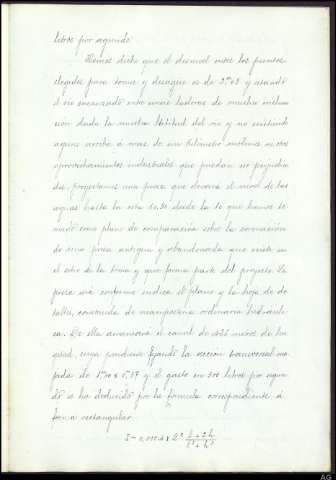 litros por segundo.
Hemos dicho que el desnivel entre los puentos
elegidos para toma y desague es de 2,m03 y estando
el rio encauzado entre unas laderas de mucha inclina
cion dada la mucha latitud del rio y no existiendo
aguas arriba á mas de un kilómetro molinos ni otros
aprovechamientos industriales que puedan ser perjudica
dos, proyectamos una presa que elevará el nivel de las
aguas hasta la cota desde la que hemos to
mado como plano de comparación sobre la coronación
de una presa antigua y abandonada que existe en
el sitio de la toma y que forma parte del proyecto. La
presa será conforme indica el plano y la hoja de de
talles, construida de mampostería ordinaria hidrauli
ca. De ella arrancará el canal de metros de lon
gitud, cuya pendiente fijando la sección transversal mo
jada de y el gasto en 500 litros por segun
do se ha deducido por la formula correspondiente á
forma rectangular